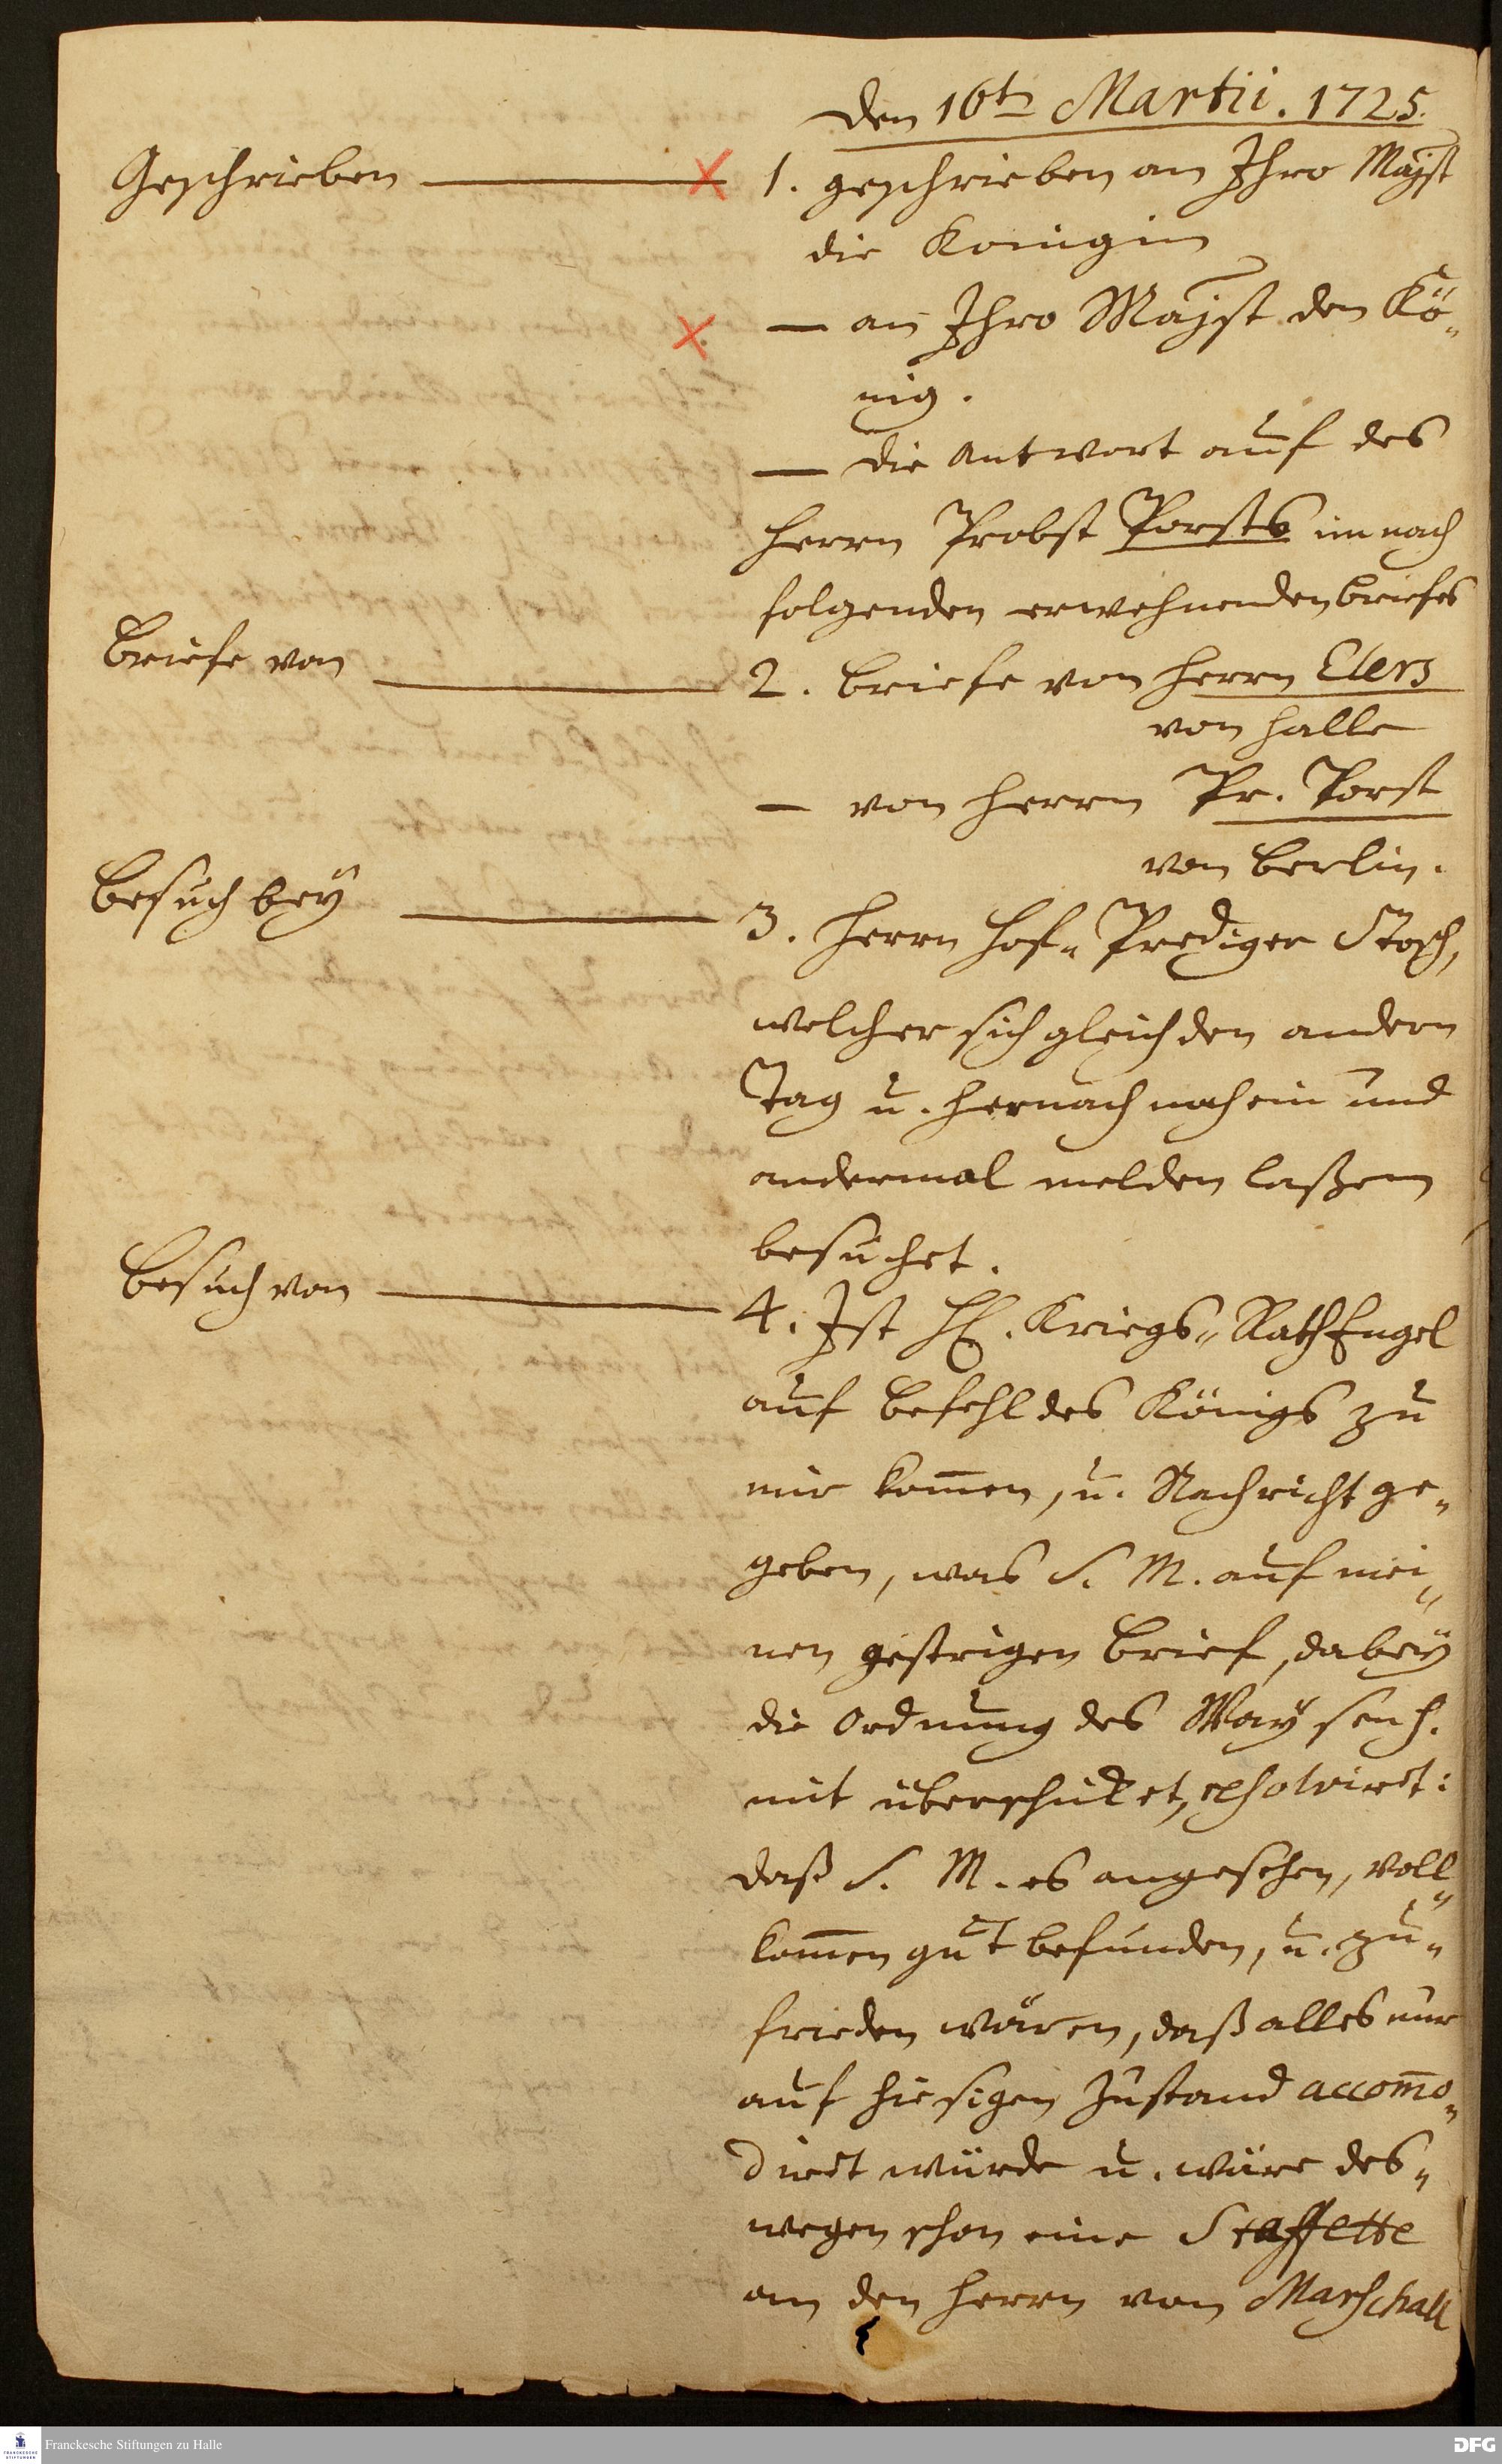 den 16ten Martii. 1725.
Geschrieben
1. geschrieben an Ihro Majst
die Königin
— an Ihro Majst den Kö„
nig.
— die Antwort auf des
Herrn Probst Porsts im nach
folgenden erwehnenden briefes
Briefe von
2. Briefe von Herrn Elers
von Halle
— von Herrn Pr. Porst
von Berlin.
Besuch bey
3. Herrn Hof„ Prediger Stosch,
welcher sich gleich den andern
Tag u. hernach noch ein und
andermal melden laßen
besuchet.
Besuch von
4. Ist H. Kriegs„ Rath Engel
auf Befehl des Königs zu
mir kom̅en, u. Nachricht ge„
geben, was S. M. auf mei„
nen gestrigen Brief, dabey
die Ordnung des Waÿsenh.
mit überschicket, resolviret:
daß S. M. es angesehen, voll„
kom̅en gut befunden, u. zu„
frieden wären, daß alles nur
auf hiesigen Zustand accom̅o„
diret würde u. wäre des„
wegen schon eine Staffette
an den Herrn von Marschall
Franckesche Stiftungen zu Halle
FRANCKESCHE
STIFTUNGEN
DFG